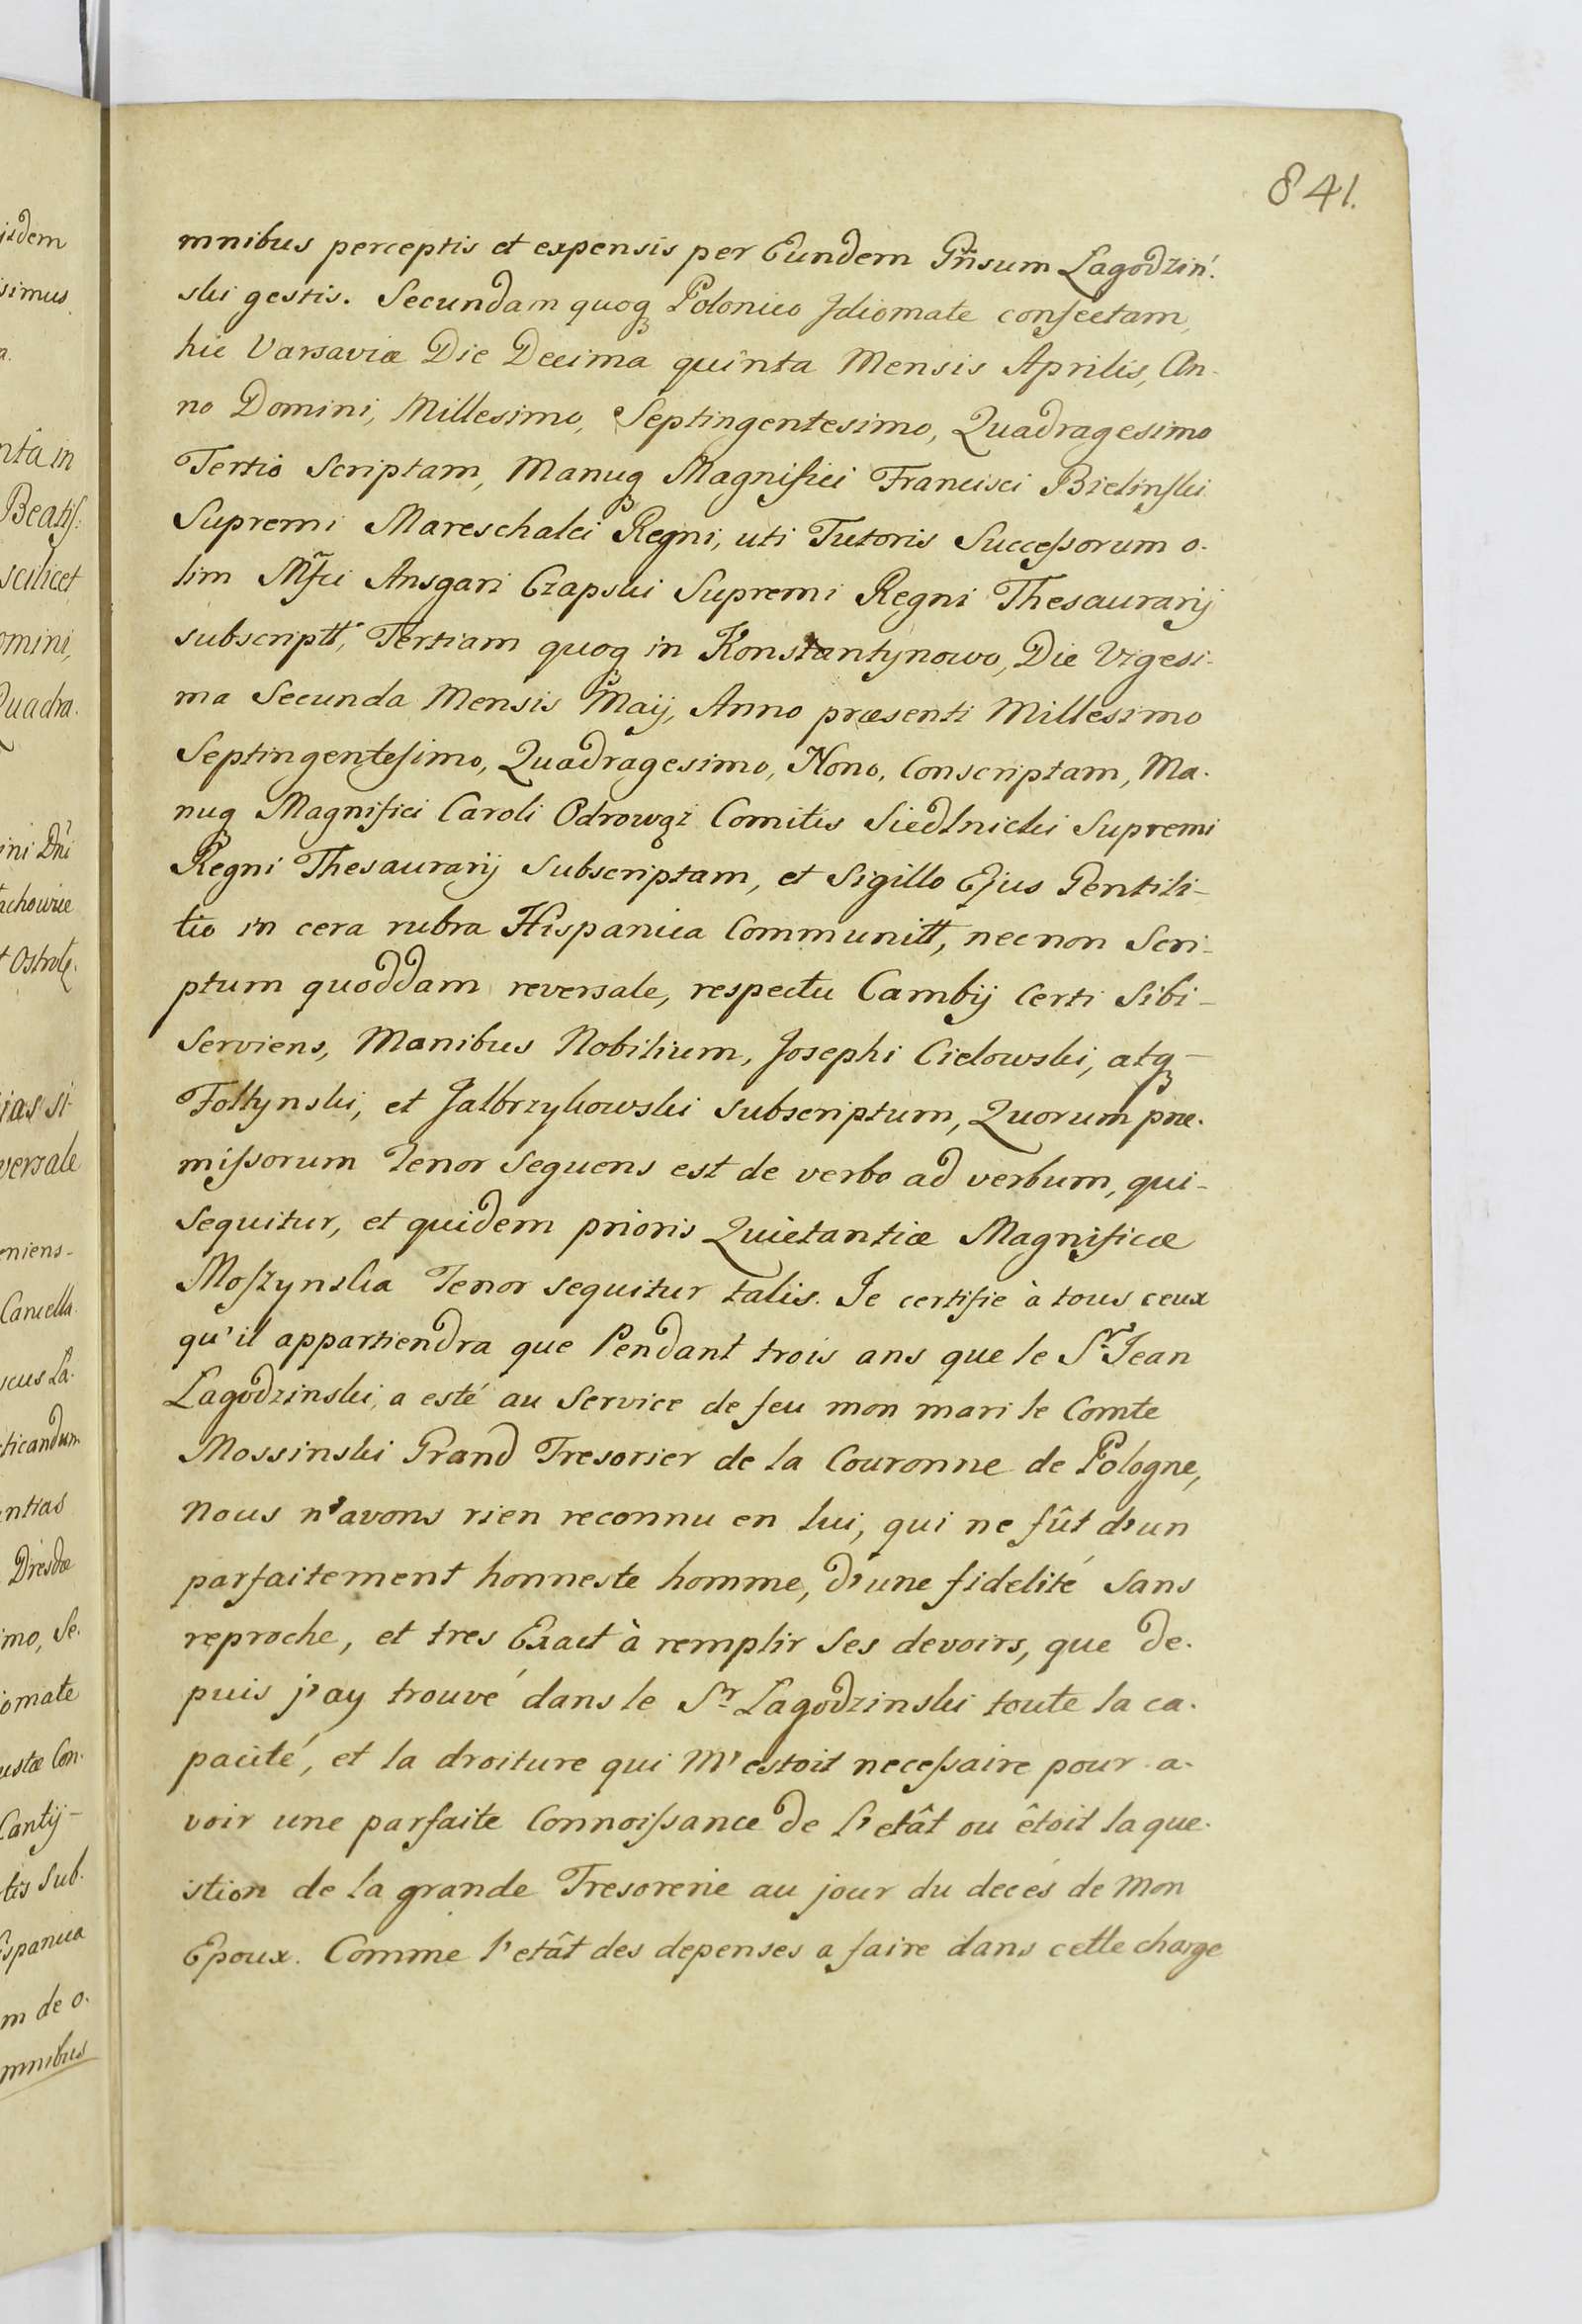 841.
mnibus perceptis et expensis per Eundem Gñsum Lagodzin
ski gestis. Secundam quoq Polonico Idiomate confectam,
hic Varsaviæ Die Decima quinta Mensis Aprilis, An-
no Domini, Millesimo, Septingentesimo, Quadragesimo
Tertio Scriptam, Manuq Magnifici Francisci Bielinski
Supremi Mareschalci Regni, uti Tutoris Successorum o-
lim Mfci Ansgari Czapski Supremi Regni Thesaurarij
subscriptt, Tertiam quoq in Konstantynowo, Die Vigesi-
ma Secunda Mensis Maij, Anno præsenti Millesimo
Septingentesimo, Quadragesimo, Nono, Conscriptam, Ma-
nuq Magnifici Caroli Odrowąz Comitis Siedlnicki Supremi
Regni Thesaurarij Subscriptam, et Sigillo Ejus Gentili-
tio in cera rubra Hispanica Communitt, necnon Scri-
ptum quoddam reversale, respectu Cambij Certi Sibi-
Serviens, Manibus Nobilium, Josephi Cielowski, atq-
Foltynski, et Jalbrzykowski Subscriptum, Quorum præ-
missorum Tenor Sequens est de verbo ad verbum, qui-
Sequitur, et quidem prioris Quietantiæ Magnificæ
Moszynska Tenor sequitur talis. Je certifie à tous ceux
qu'il appartiendra que Pendant trois ans que le Sr. Jean
Lagodzinski, a esté au Service de feu mon mari le Comte
Mossinski Grand Tresorier de la Couronne de Pologne,
Nous n'avons rien reconnu en lui, qui ne fût d'un
parfaitement honneste homme, d'une fidelité Sans
reproche, et tres Exact à remplir Ses devoirs, que de-
puis j'ay trouvé dans le Sr. Lagodzinski toute la ca-
pacité, et la droiture qui M'estoit necessaire pour a-
voir une parfaite Connoissance de l'etât ou êtoit la que-
stion de la grande Tresorerie au jour du decés de Mon
Epoux. Comme l'etât des depenses a faire dans cette charge